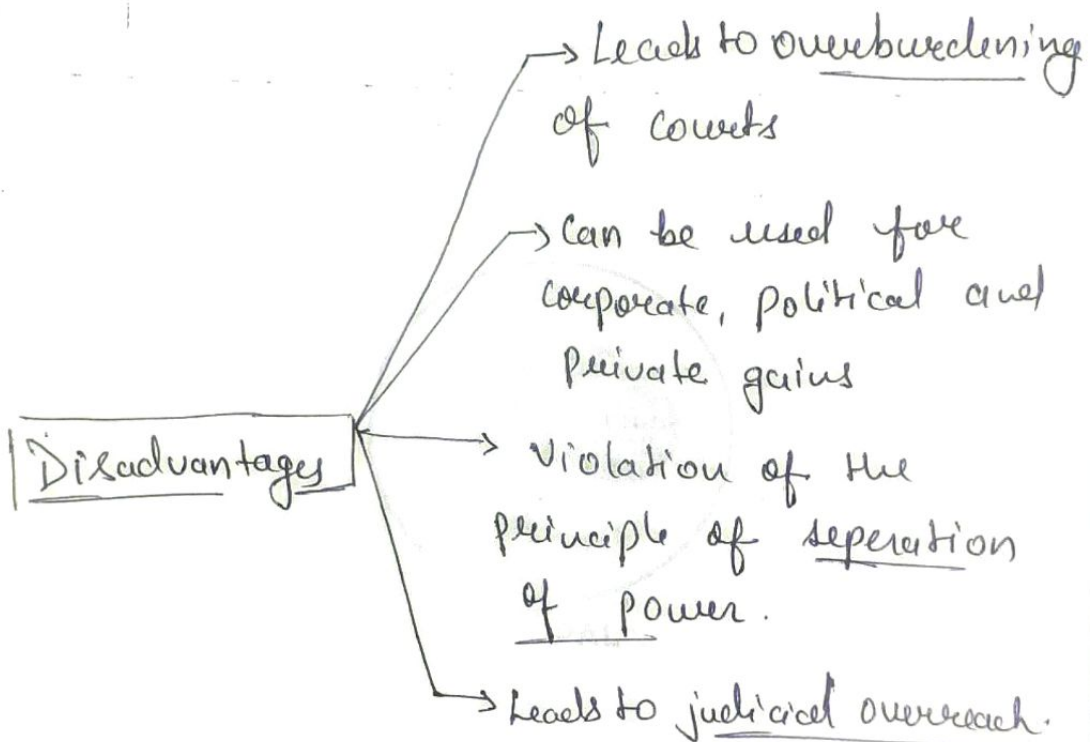 Leads to overburdening
of courts
Can be used for
corporate, political and
private gains
Disadvantages
Violation of the
principle of seperation
of power.
Leads to judicial overreach.